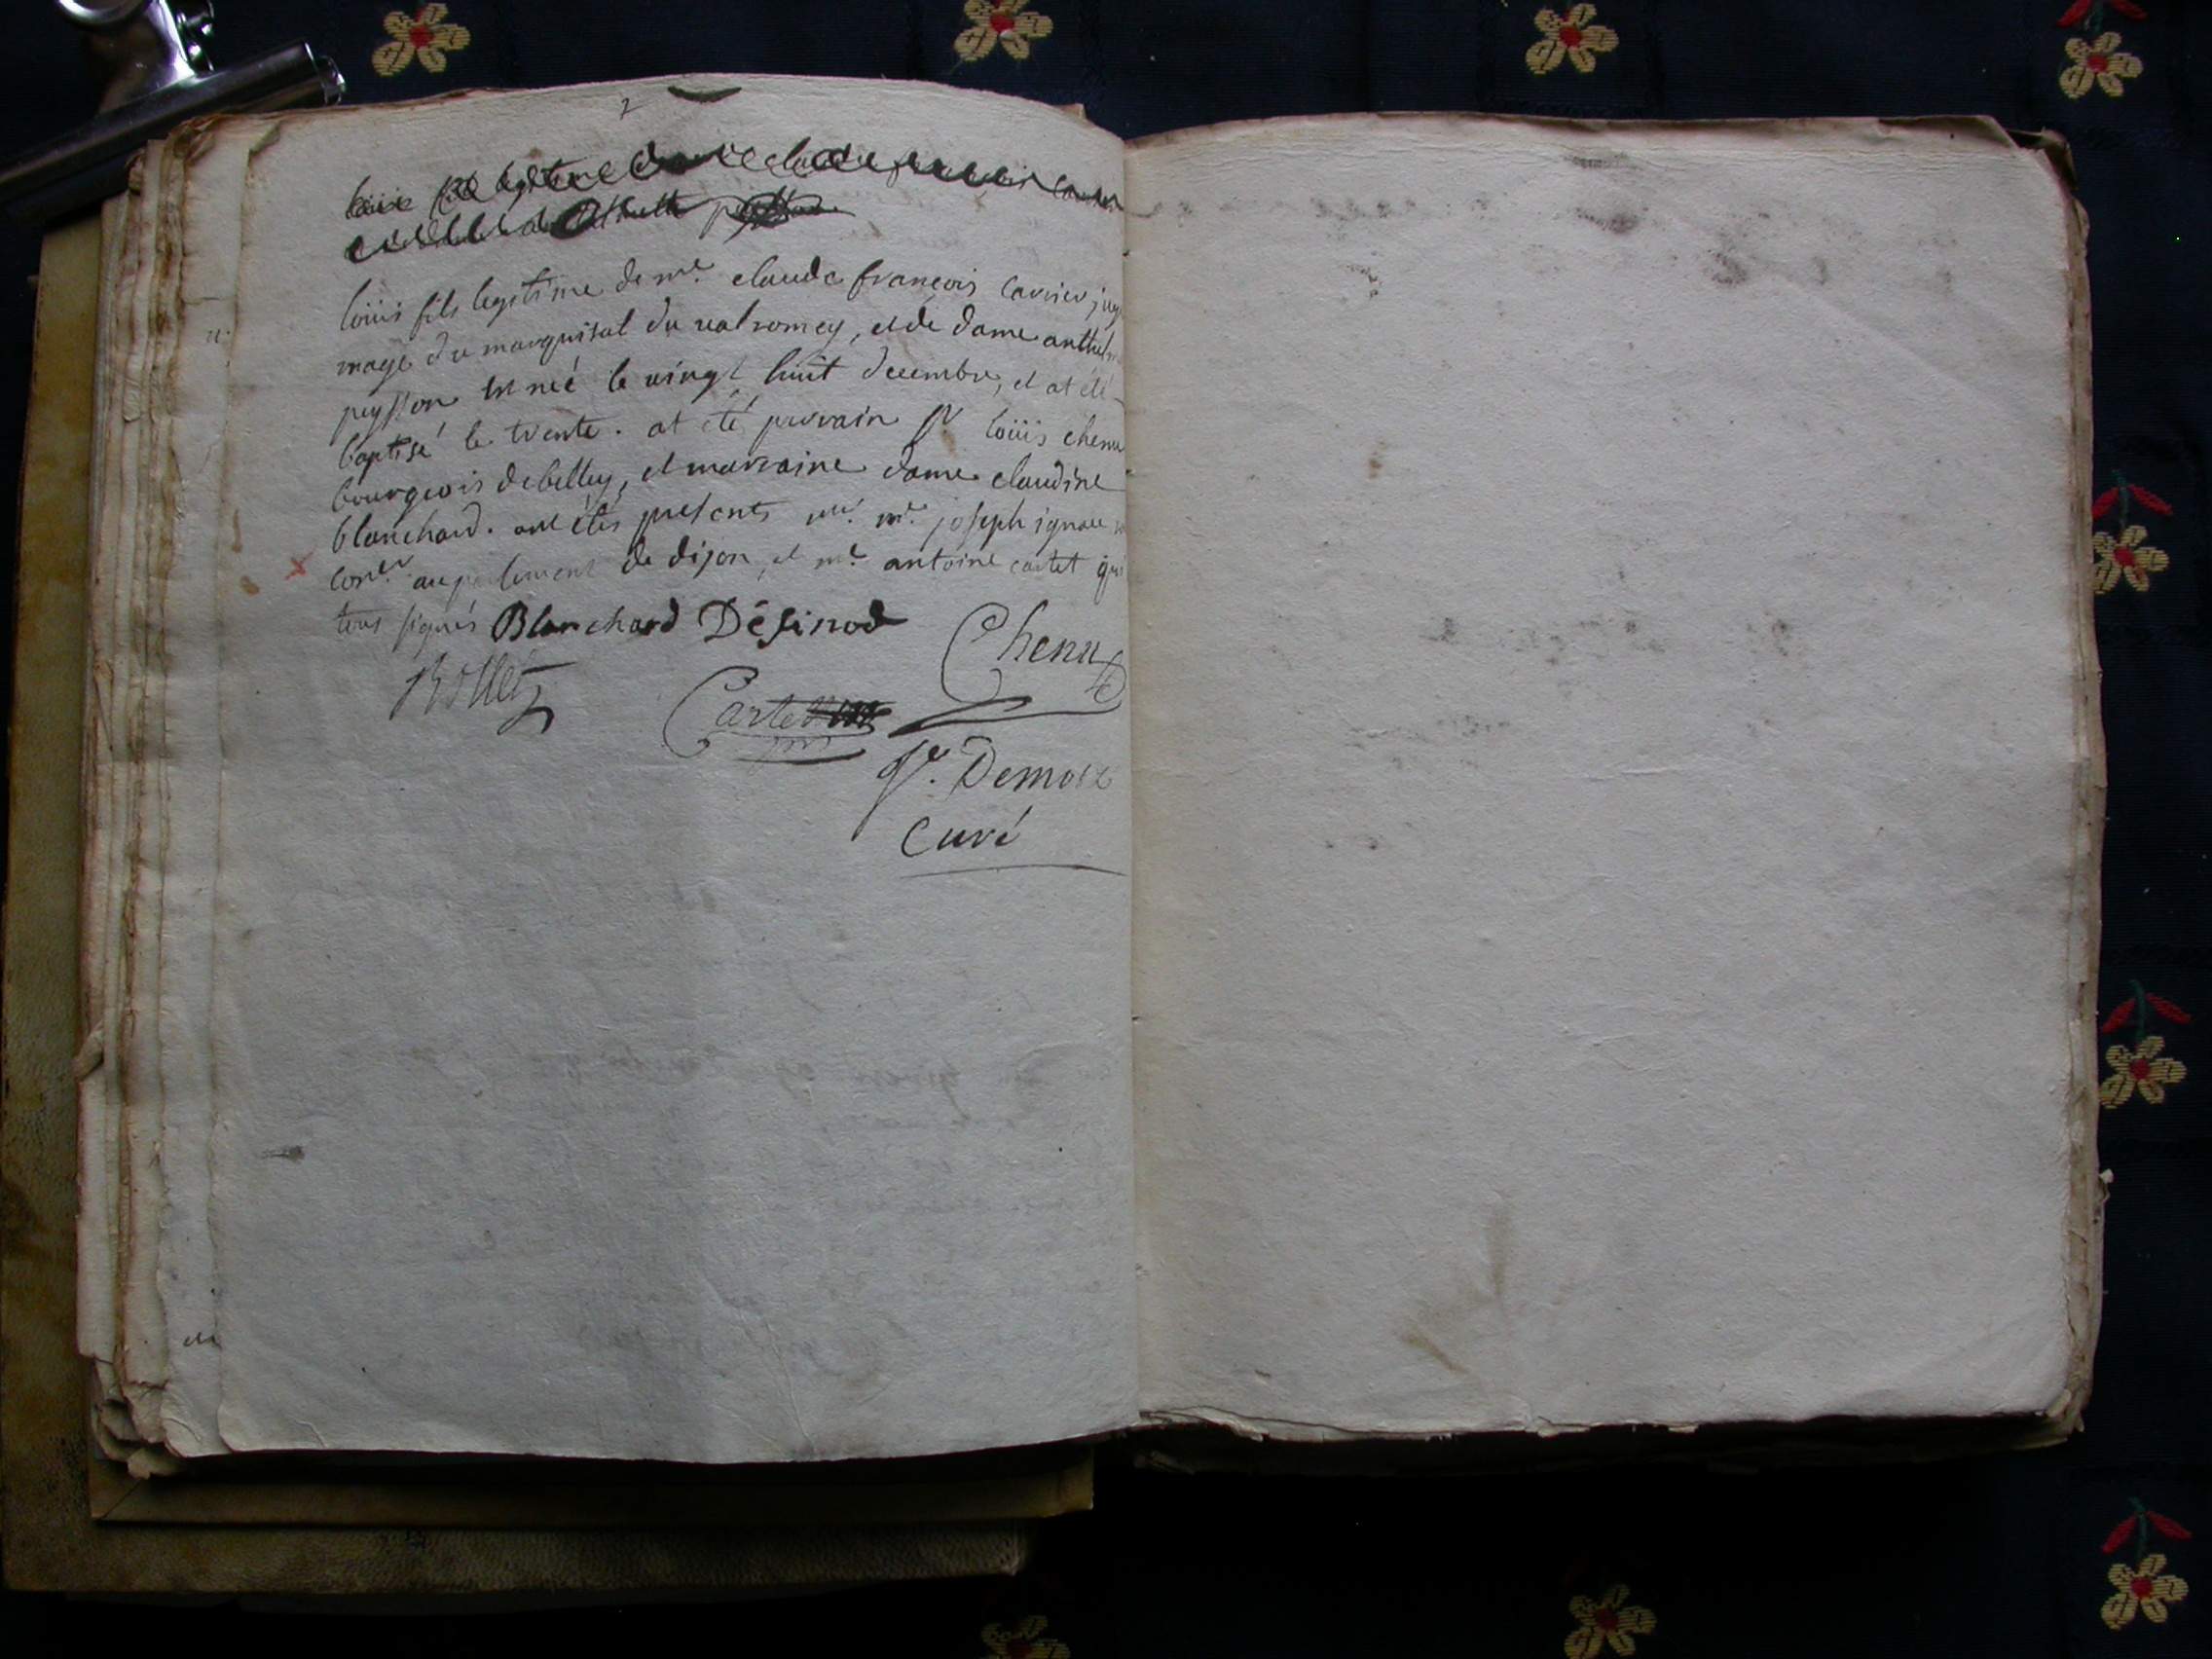 2
loüis fils legitime de claude françois
loüis fils legitime de me. claude françois Carrier jug
mage du marquisat du valromey, et de dame anthelm
peysson est neé le vingt huit decembre, et at été
baptisé le trente. at eté parrain sr. loüis chenu
bourgeois de belley, et marraine dame claudine
blanchard. ont étés présents me. joseph ignace
coner. au parlement de dijon, et me. antoine cartet qui
tous signés Blanchard Désinod
Chenu
Rollet
Cartet
Demoz
Curé